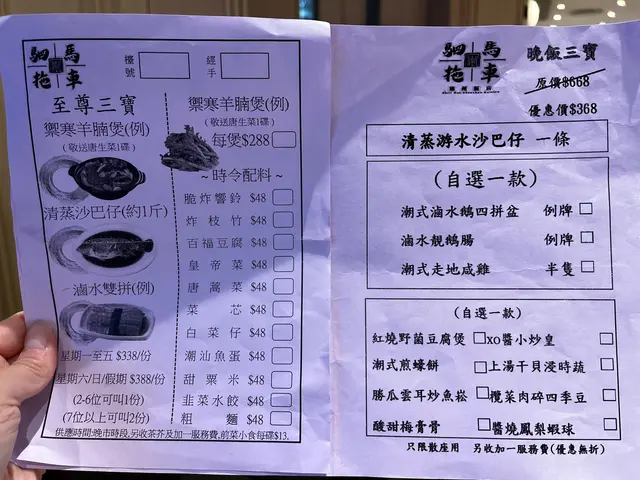 駟馬拖車
檯號
經手
至尊三寶
禦寒羊腩煲(例)
(敬送唐生菜1碟)
清蒸沙巴仔(約1斤)
滷水雙拼(例)
星期一至五 $338/份
星期六/日/假期 $388/份
(2-6位可叫1份)
(7位以上可叫2份)
禦寒羊腩煲(例)
(敬送唐生菜1碟)
每煲$288
~時令配料~
脆炸響鈴 $48
炸枝竹 $48
百福豆腐 $48
皇帝菜 $48
唐蒿菜 $48
菜芯 $48
白菜仔 $48
潮汕魚蛋 $48
甜粟米 $48
韭菜水餃 $48
粗麵 $48
供應時間:晚市時段,另收茶芥及加一服務費,前菜小食每碟$13.
駟馬拖車
晚飯三寶
原價$668
優惠價$368
清蒸游水沙巴仔 一條
(自選一款)
潮式滷水鵝四拼盆 例牌
滷水靚鵝腸 例牌
潮式走地咸雞 半隻
(自選一款)
紅燒野菌豆腐煲 xo醬小炒皇
潮式煎蠔餅 上湯干貝浸時蔬
勝瓜雲耳炒魚崧 欖菜肉碎四季豆
酸甜梅膏骨 醬燒鳳梨蝦球
只限散座用 另收加一服務費(優惠無折)